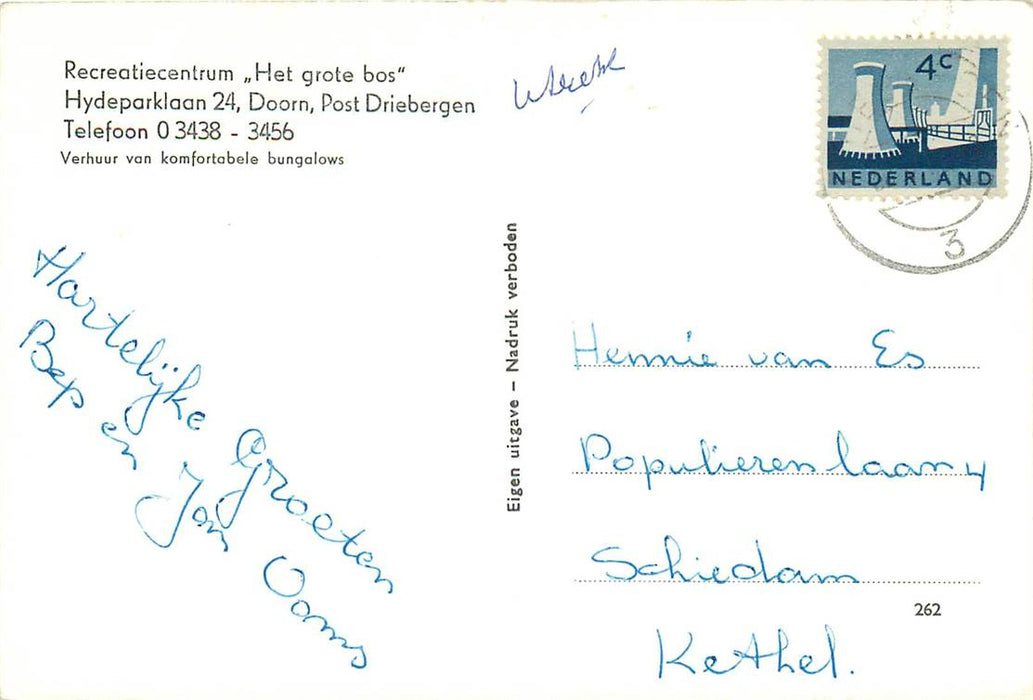 Recreatiecentrum „Het grote bos“
Hydeparklaan 24, Doorn, Post Driebergen
Telefoon 0 3438 - 3456
Verhuur van komfortabele bungalows
4c
NEDERLAND
3
Hartelijke Groeten
Bep en Jan Ooms
Eigen uitgave – Nadruk verboden
Hennie van Es
Populierenlaan 4
Schiedam
262
Kethel.